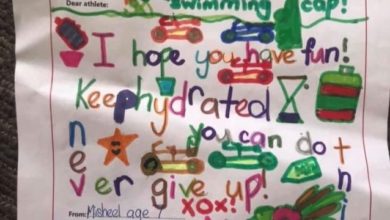 Dear athlete:
swimming cap!
I hope you have fun!
Keep hydrated
you can do
never give up!
xox!
From: Misheel age 7